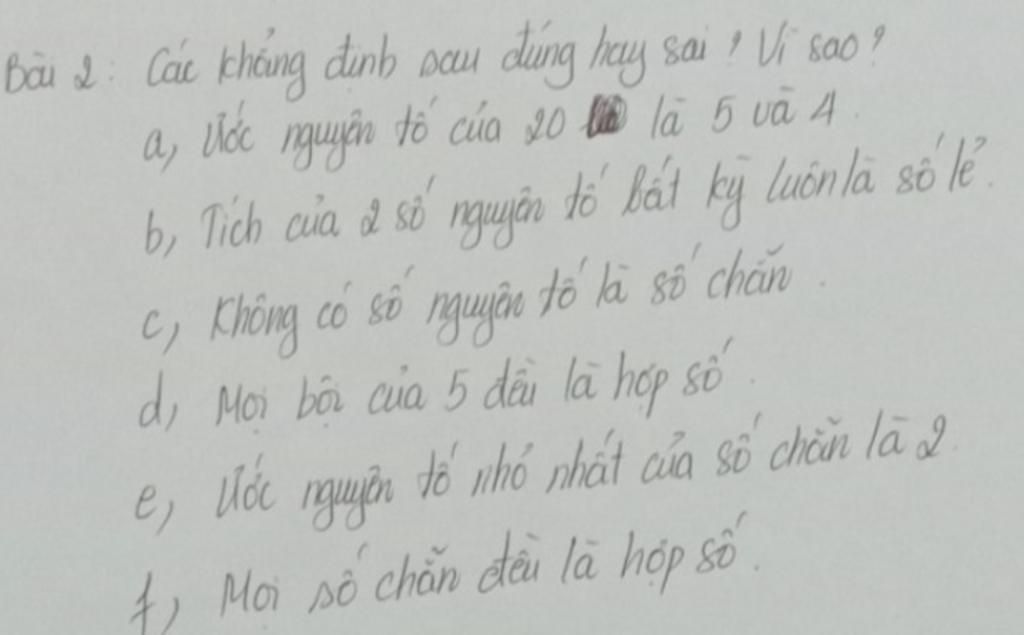 Bài 2: Các khẳng định sau đúng hay sai? Vì sao?
a, Ước nguyên tố của 20 là 5 và 4.
b, Tích của 2 số nguyên tố bất kỳ luôn là số lẻ.
c, Không có số nguyên tố là số chẵn.
d, Mọi bội của 5 đều là hợp số.
e, Ước nguyên tố nhỏ nhất của số chẵn là 2.
f, Mọi số chẵn đều là hợp số.